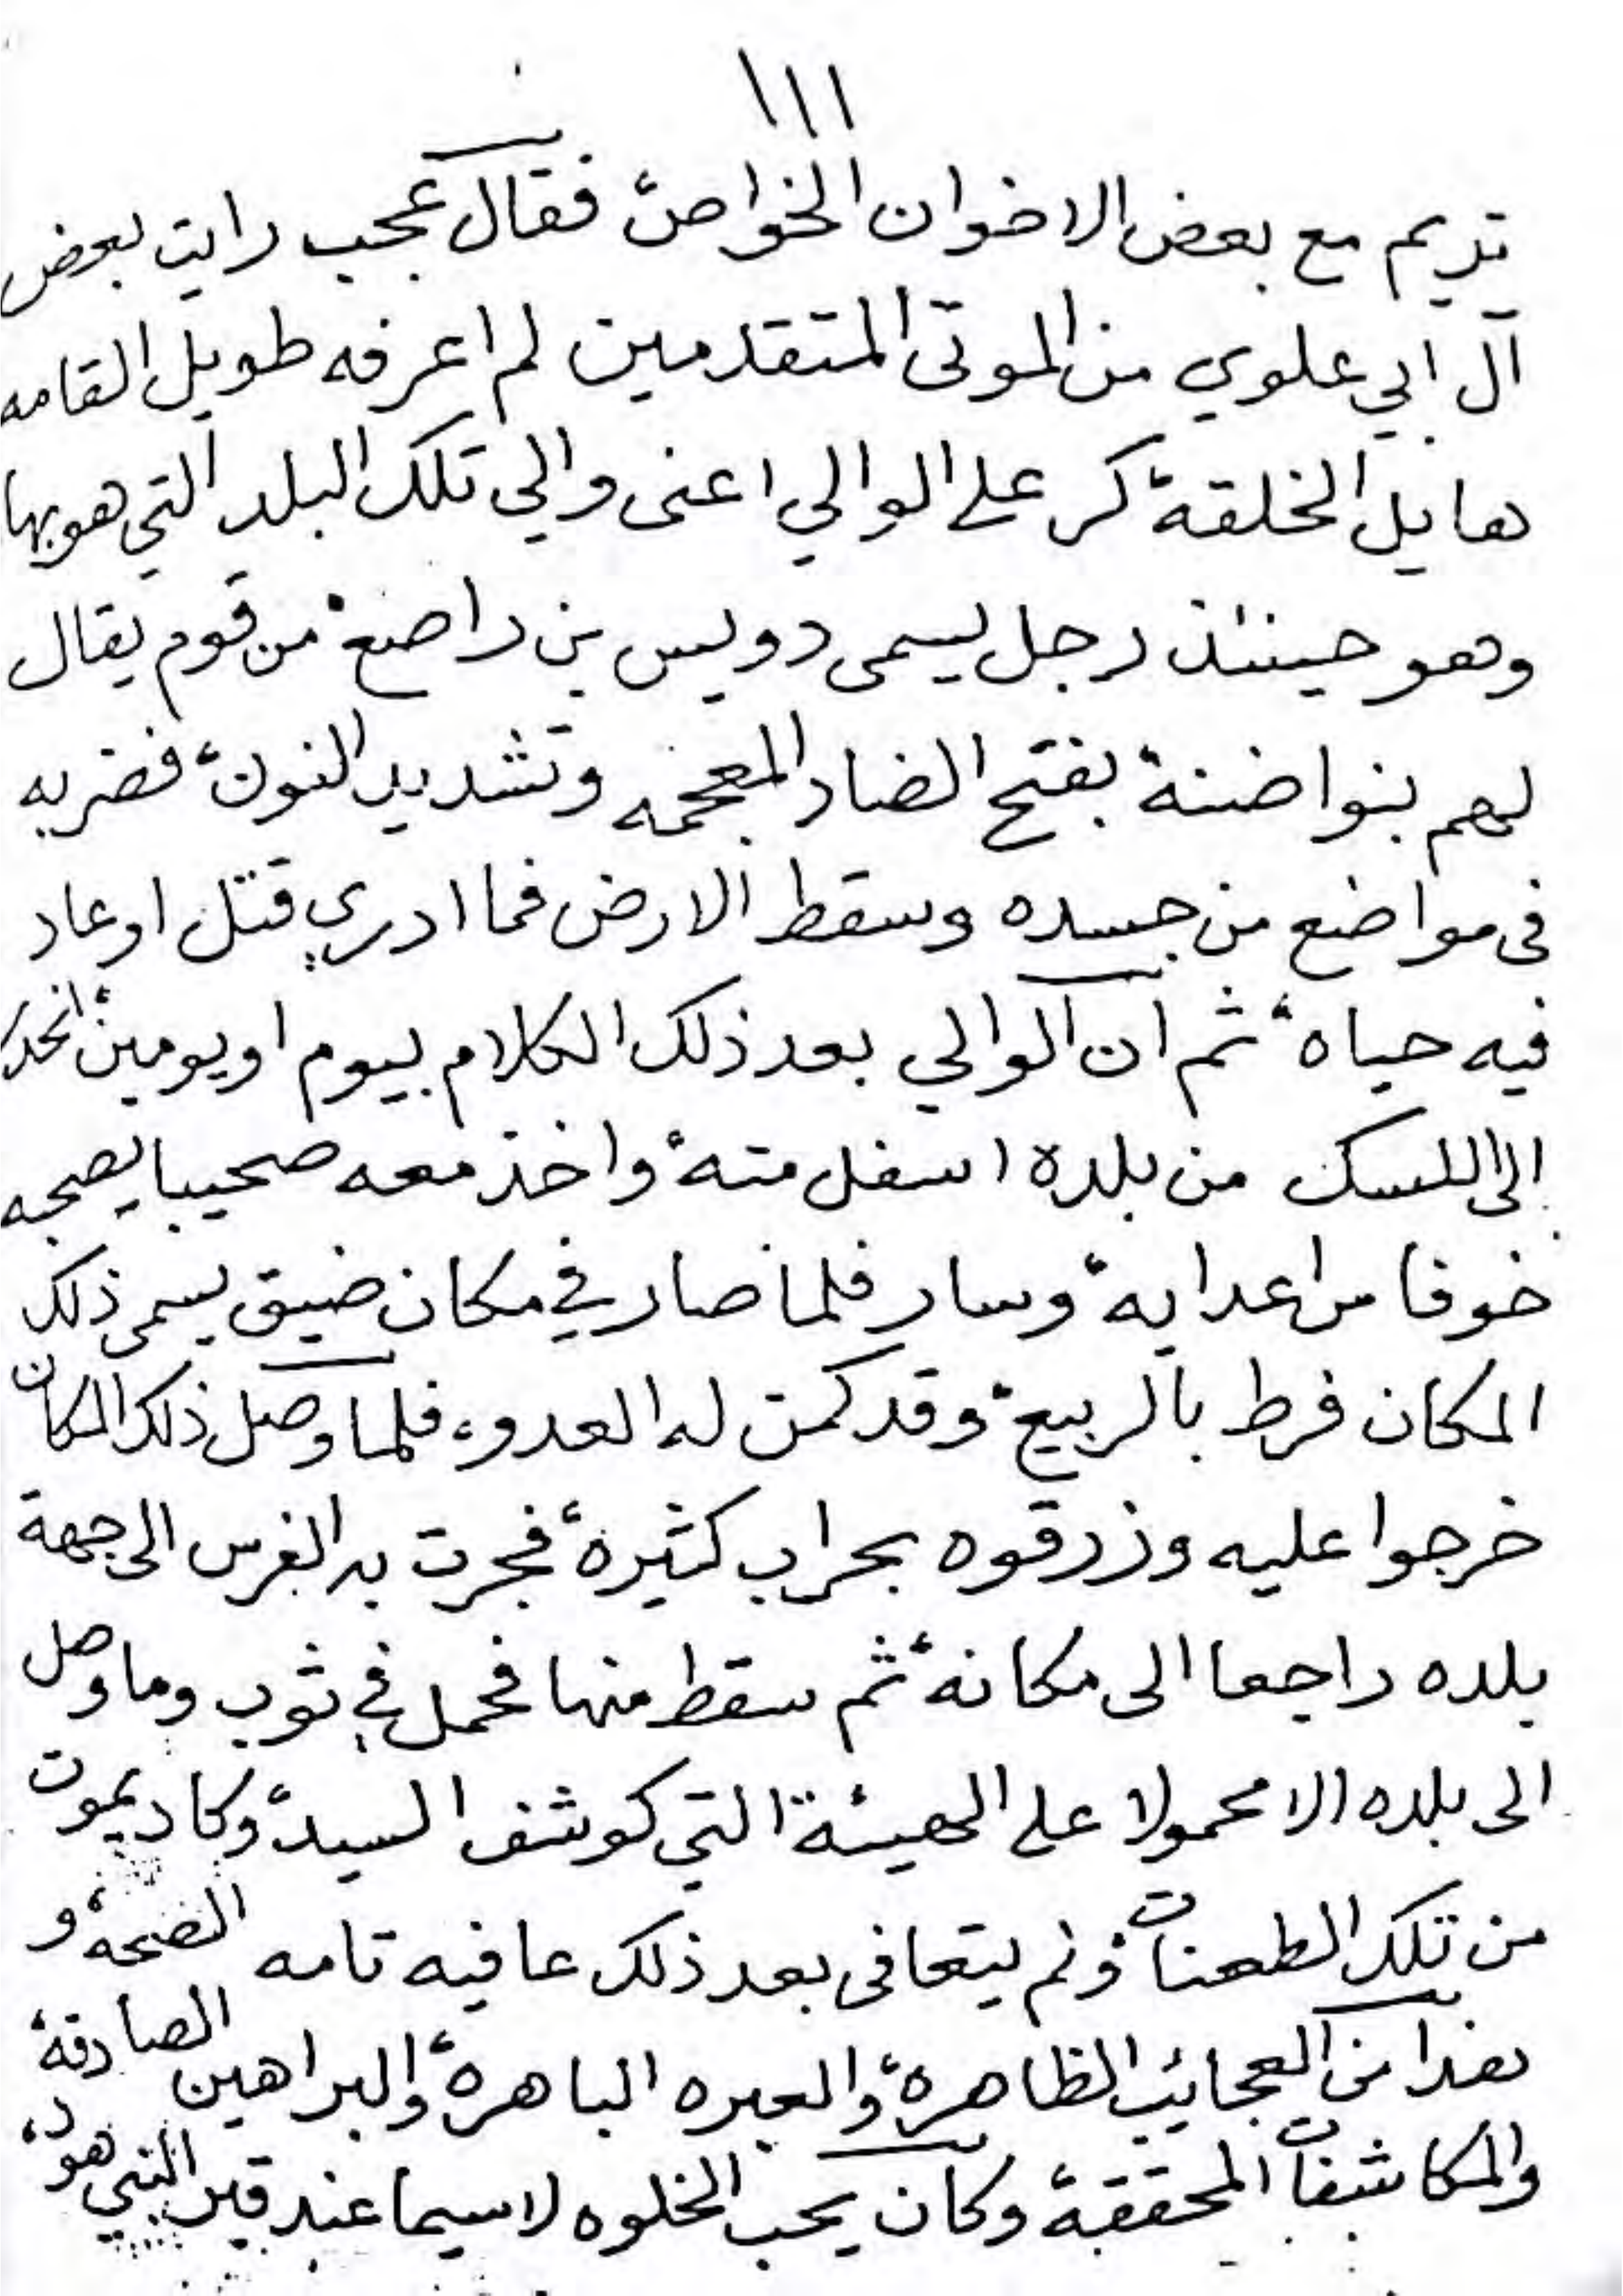 ١١١
تريم مع بعض الاخوان الخواص فقال عجب رايت بعض
آل ابي علوي من الموتى المتقدمين لم اعرفه طويل القامه
هايل الخلقة كر على الوالي اعنى والي تلك البلد التي هو بها
وهو حينئذ رجل يسمى دويس بن راصع من قوم يقال
لهم بنوا ضنة بفتح الضاد المعجمه وتشديد النون فضربه
فى مواضع من جسده وسقط الارض فما ادري قتل او عاد
فيه حياه ثم ان الوالي بعد ذلك الكلام بيوم او يومين انحدر
الى اللسك من بلدة اسفل منه واخذ معه صحيبا يصحبه
خوفا من اعدايه وسار فلما صار في مكان ضيق يسمى ذلك
المكان فرط بالربيع وقد كمن له العدو، فلما وصل ذلك المكان
خرجوا عليه وزرقوه بحراب كثيرة فجرت به الفرس الى جهة
بلده راجعا الى مكانه ثم سقط منها فحمل في ثوب وما وصل
الى بلده الا محمولا على الهيئة التي كوشف السيد وكاد يموت
من تلك الطعنات ولم يتعافى بعد ذلك عافيه تامه الصحه و
هذا من العجايب الظاهرة والعبره الباهرة والبراهين الصادقة
والمكاشفات المحققة وكان يحب الخلوه لا سيما عند قبر النبي هود،